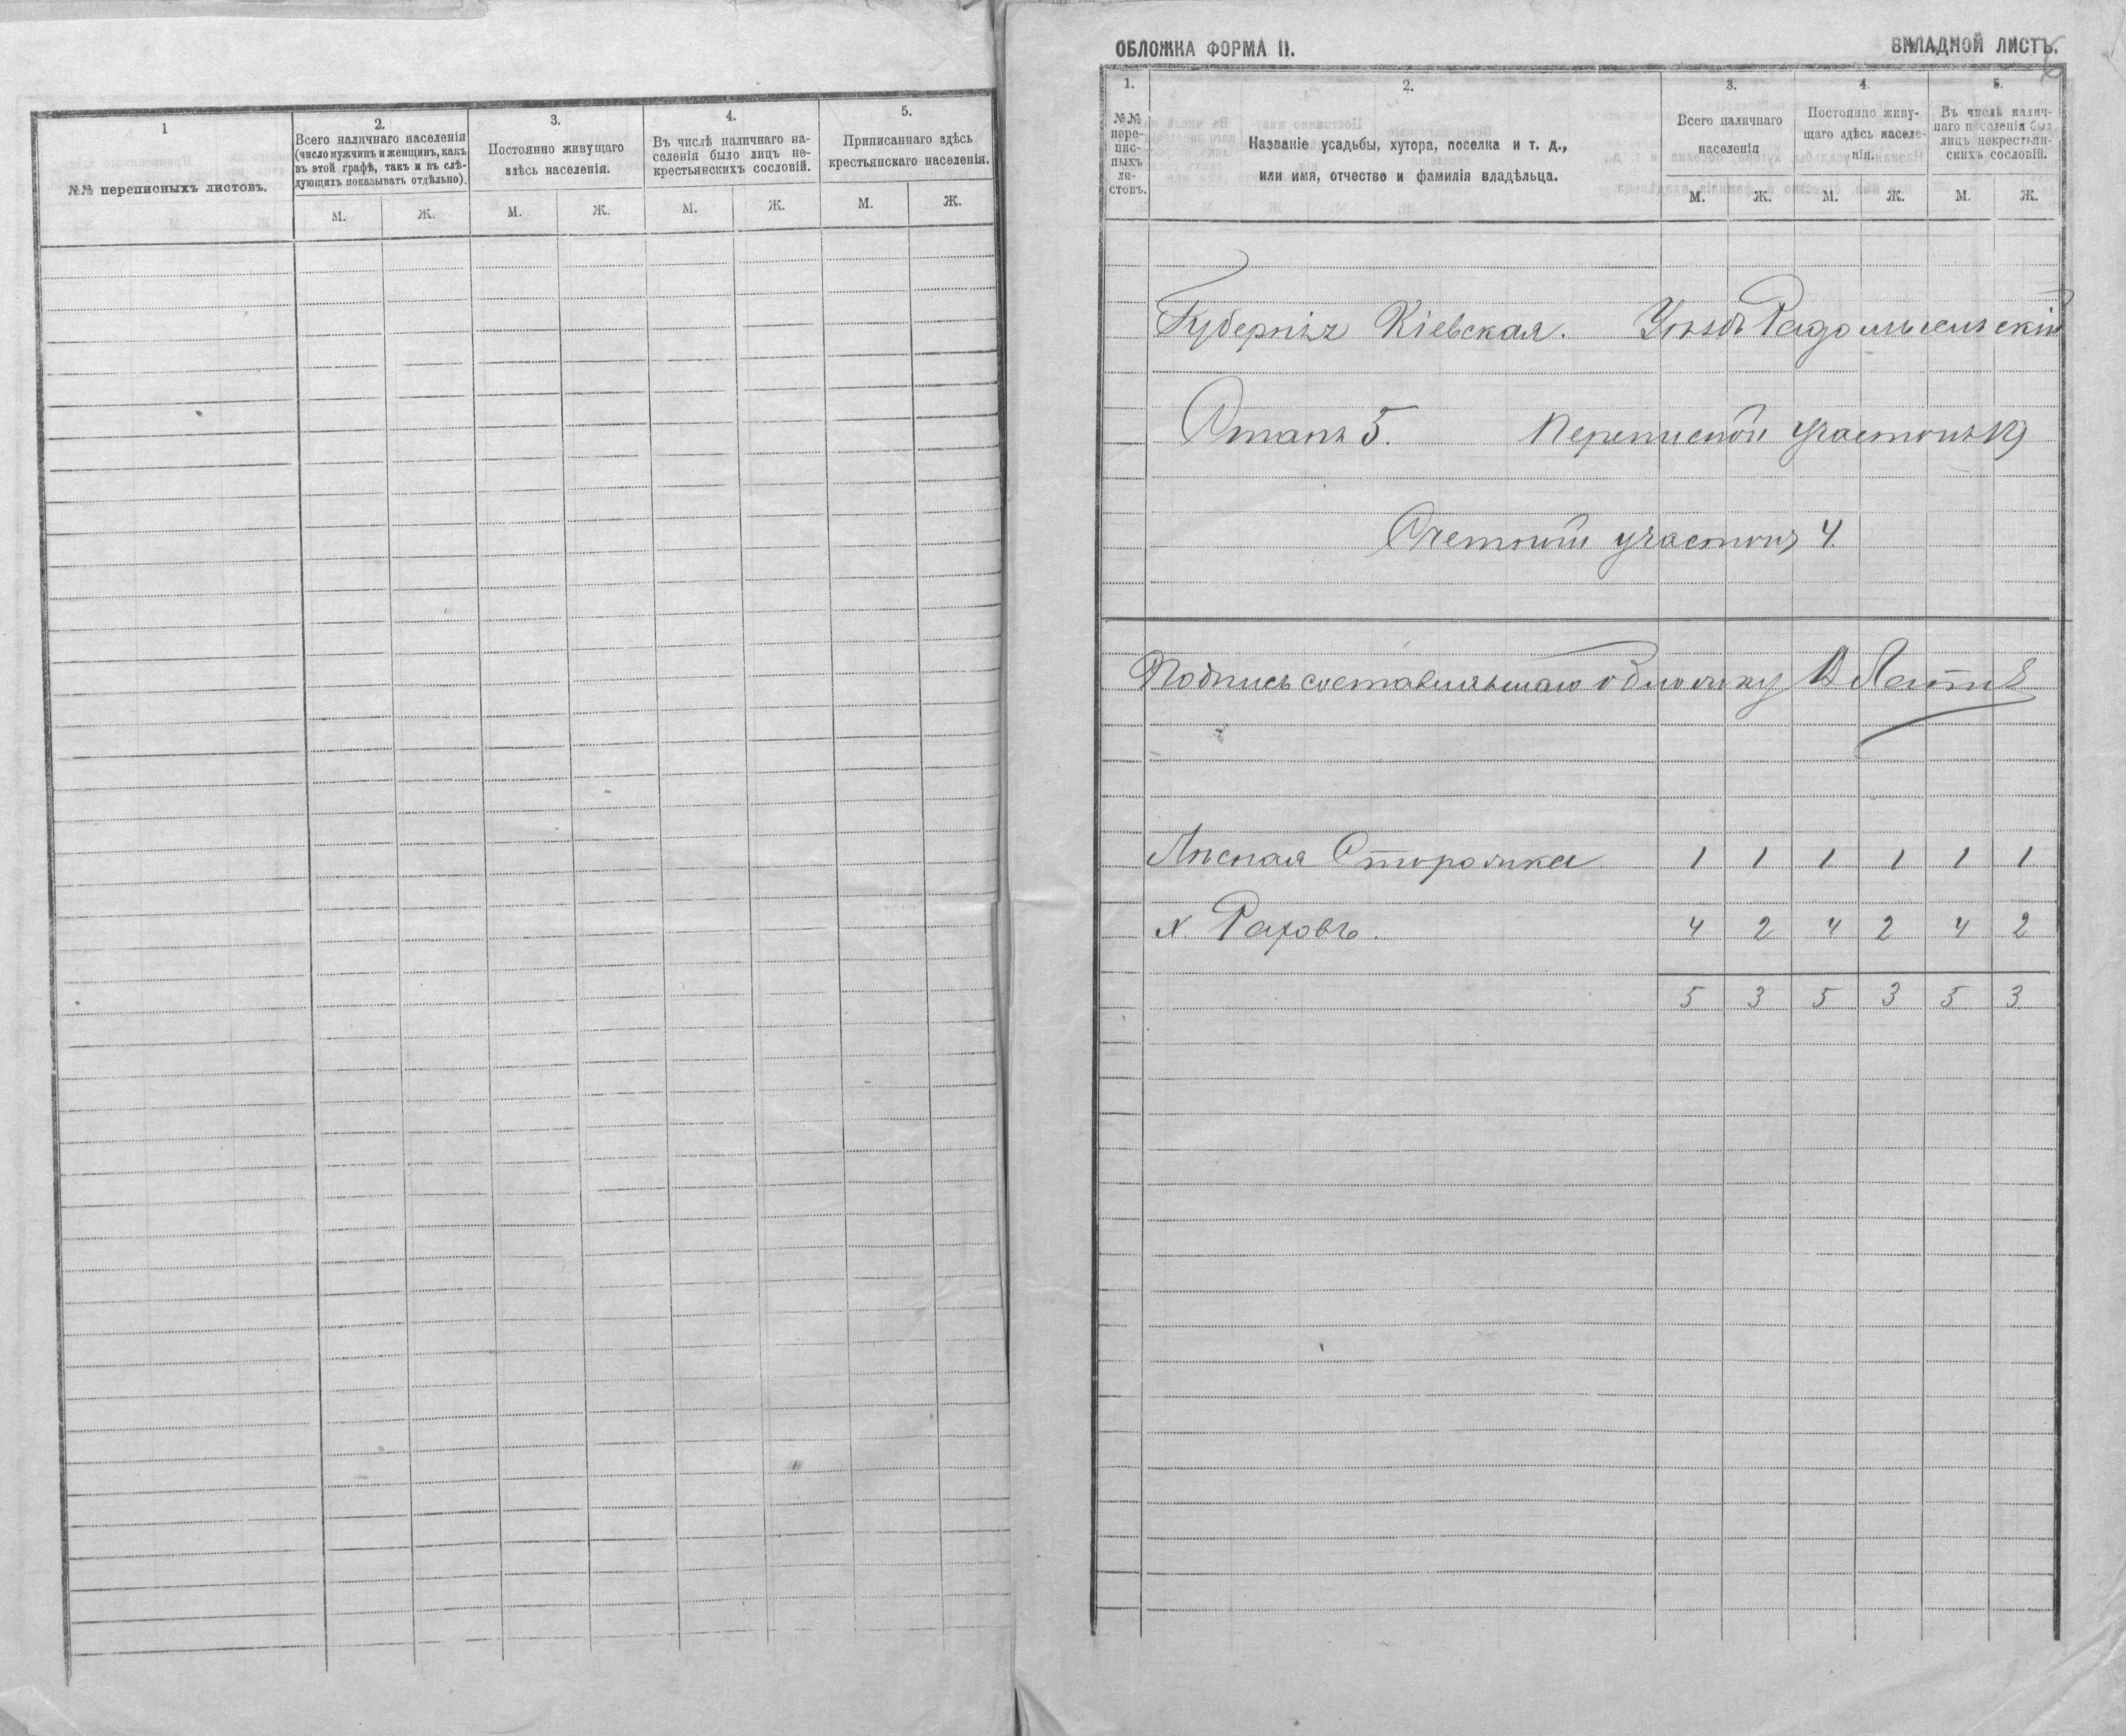 1
№№ переписныхъ листовъ.
2.
Всего наличнаго населенія
(число мужчинъ и женщинъ, какъ
въ этой графѣ, такъ и въ слѣ-
дующихъ показывать отдѣльно).
М. Ж.
3.
Постоянно живущаго
здѣсь населенія.
М. Ж.
4.
Въ числѣ наличнаго на-
селенія было лицъ не-
крестьянскихъ сословій.
М. Ж.
5.
Приписаннаго здѣсь
крестьянскаго населенія.
М. Ж.
ОБЛОЖКА ФОРМА II. ВКЛАДНОЙ ЛИСТЪ.
6
1.
№№
пере-
пис-
ныхъ
ли-
стовъ.
2.
Названіе усадьбы, хутора, поселка и т. д.,
или имя, отчество и фамилія владѣльца.
3.
Всего наличнаго
населенія
М. Ж.
4.
Постоянно живу-
щаго здѣсь населе-
нія.
М. Ж.
5.
Въ числѣ налич-
наго населенія был
лицъ некрестьян-
скихъ сословій.
М. Ж.
Губернія Кіевская. Уѣздъ Радомысльскій
Станъ 5. Переписной участокъ 19
Счетный участокъ 4.
Подпись составлявшаго обложку
Лѣсная Сторожка 1 1 1 1 1 1
х. Раховъ. 4 2 4 2 4 2
5 3 5 3 5 3